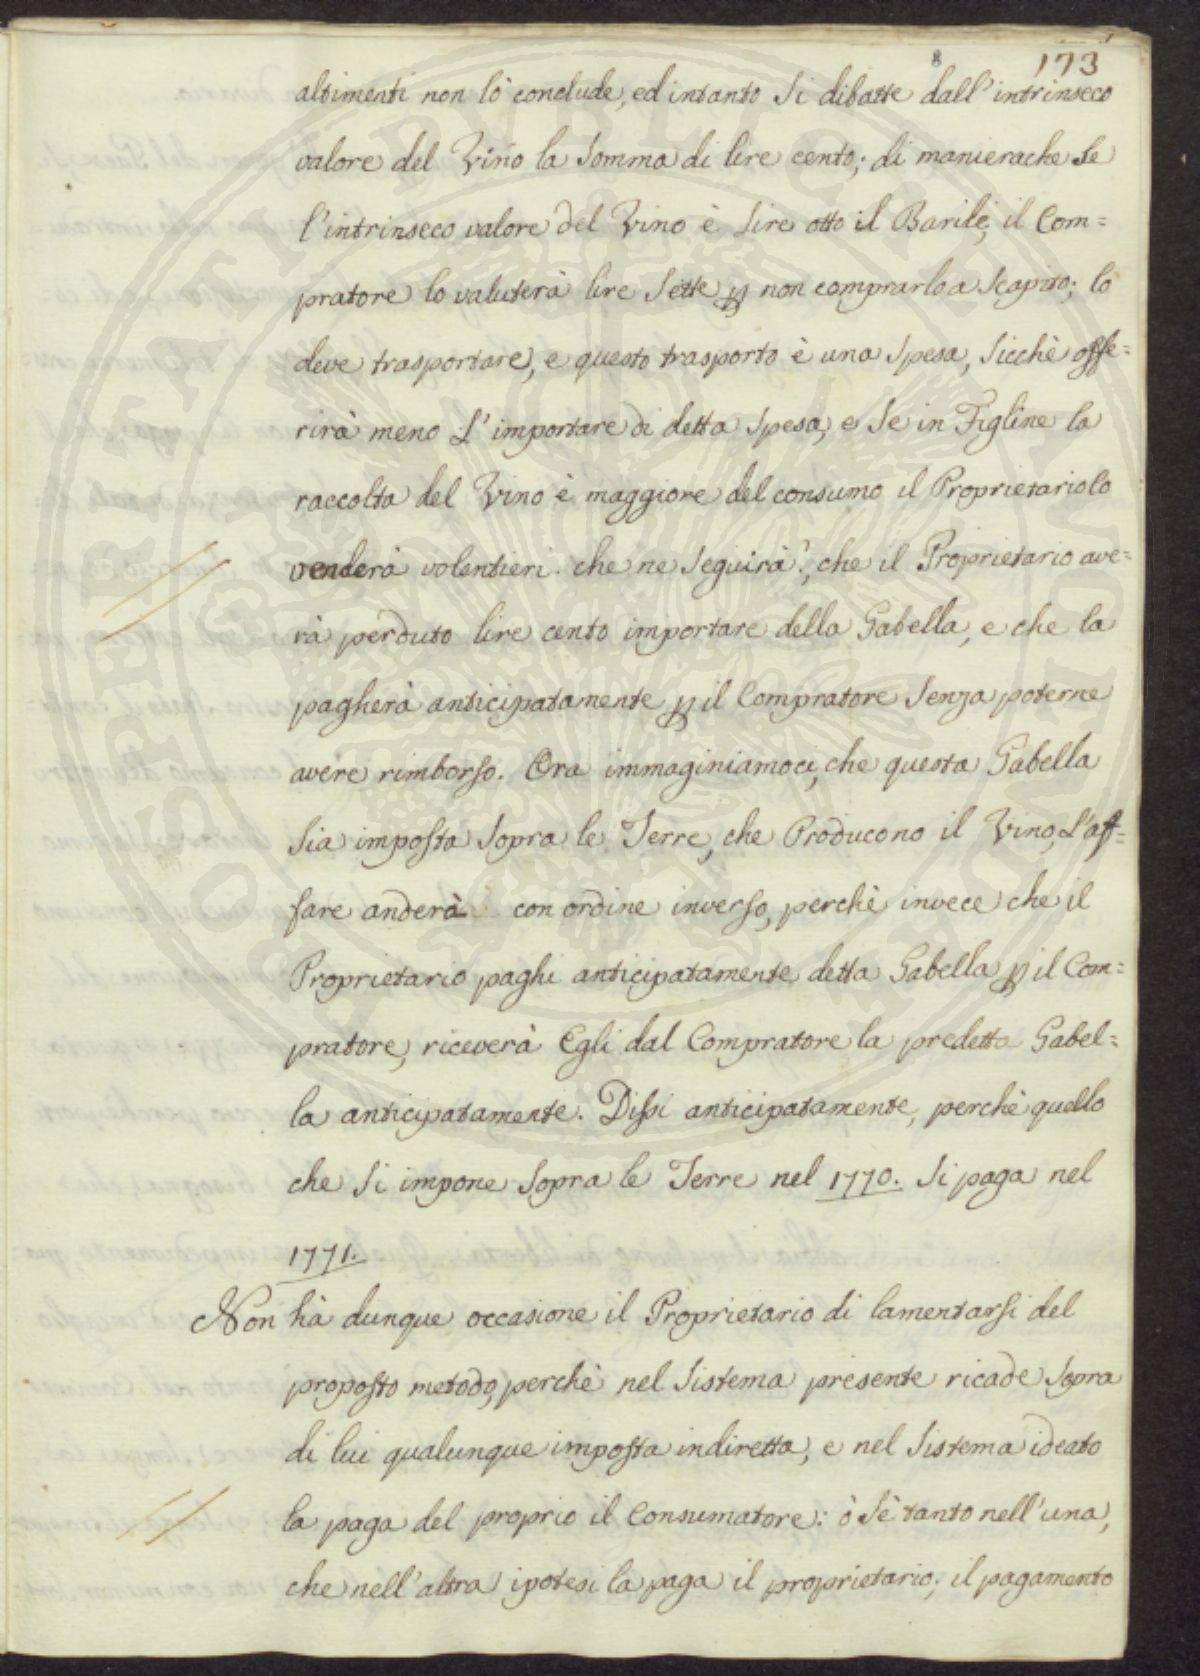 8 173
altimenti non lò conclude, ed intanto si dibatte dall'intrinseco
valore del Vino la somma di lire cento; di manierache se
l'intrinseco valore del Vino è lire otto il Barile, il Com=
pratore lo valuterà lire sette p non comprarlo a scapito; lo
deve trasportare, e questo trasporto è una spesa, sicchè offe=
rirà meno L'importare di detta spesa, e se in Figline la
raccolta del Vino è maggiore del consumo il Proprietario lo
venderà volentieri. che ne seguirà?, che il Proprietario ave=
rà perduto lire cento importare della Gabella, e che la
pagherà anticipatamente p il Compratore senza poterne
avere rimborso. Ora immaginiamoci, che questa Gabella
sia imposta sopra le Terre, che Producono il Vino, L'af=
fare anderà con ordine inverso, perchè invece che il
Proprietario paghi anticipatamente detta Gabella p il Com=
pratore, riceverà Egli dal Compratore la predetta Gabel=
la anticipatamente. Dissi anticipatamente, perchè quello
che si impone sopra le Terre nel 1770. si paga nel
1771.
Non hà dunque occasione il Proprietario di lamentarsi del
proposto metodo, perchè nel sistema presente ricade sopra
di lui qualunque imposta indiretta, e nel sistema ideato
la paga del proprio il Consumatore: ò sè tanto nell'una,
che nell'altra ipotesi la paga il proprietario; il pagamento
PROSPERITATI PUBLICAE